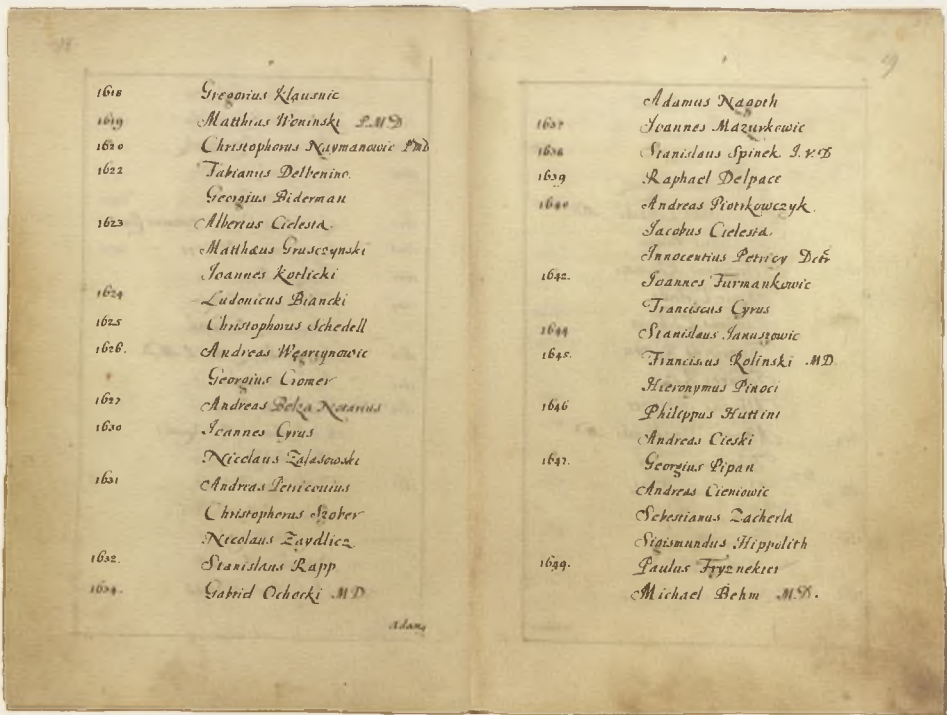 1618 Gregorius Klausnic
1619 Matthias Woninski P.M.D
1620 Christophorus Naymanowic PMD
1622 Fabianus Delbenino.
Georgius Biderman
1623 Albertus Cielesta.
Matthæus Grusczynski
Joannes Kotlicki
1624 Ludouicus Biancki
1625 Christophorus Schedell
1626. Andreas Węgrzynowic
Georgius Cromer
1627 Andreas Belza Notarius
1630 Joannes Cyrus
Nicolaus Zalasowski
1631 Andreas Petriconius
Christophorus Szober
Nicolaus Zaydlicz
1632. Stanislaus Rapp
1634. Gabriel Ochocki MD
Adam9
19
Adamus Nagoth
1637 Joannes Mazurkowic
1638 Stanislaus Spinek I.V.D
1639 Raphael Delpace
1640 Andreas Piotrkowczyk.
Jacobus Cielesta.
Innocentius Petricy Dctr
1642. Joannes Furmankowic
Franciscus Cyrus
1644 Stanislaus Januszowic
1645. Franciscus Rolinski MD
Hieronymus Pinoci
1646 Philippus Huttini
Andreas Cieski
1647. Georgius Pipan
Andreas Cieniowic
Sebestianus Zacherla
Sigismundus Hippolith
1649. Paulus Frysnekier
Michael Behm M.D.